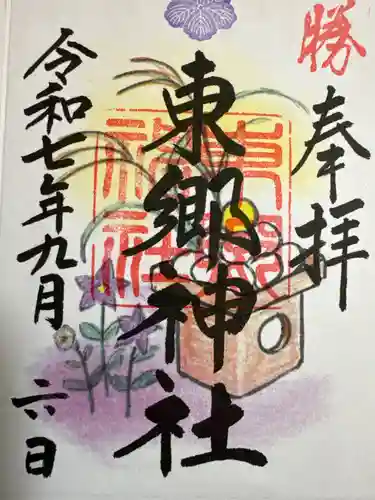 勝
奉拝
東郷神社
東郷神社
令和七年九月
六日